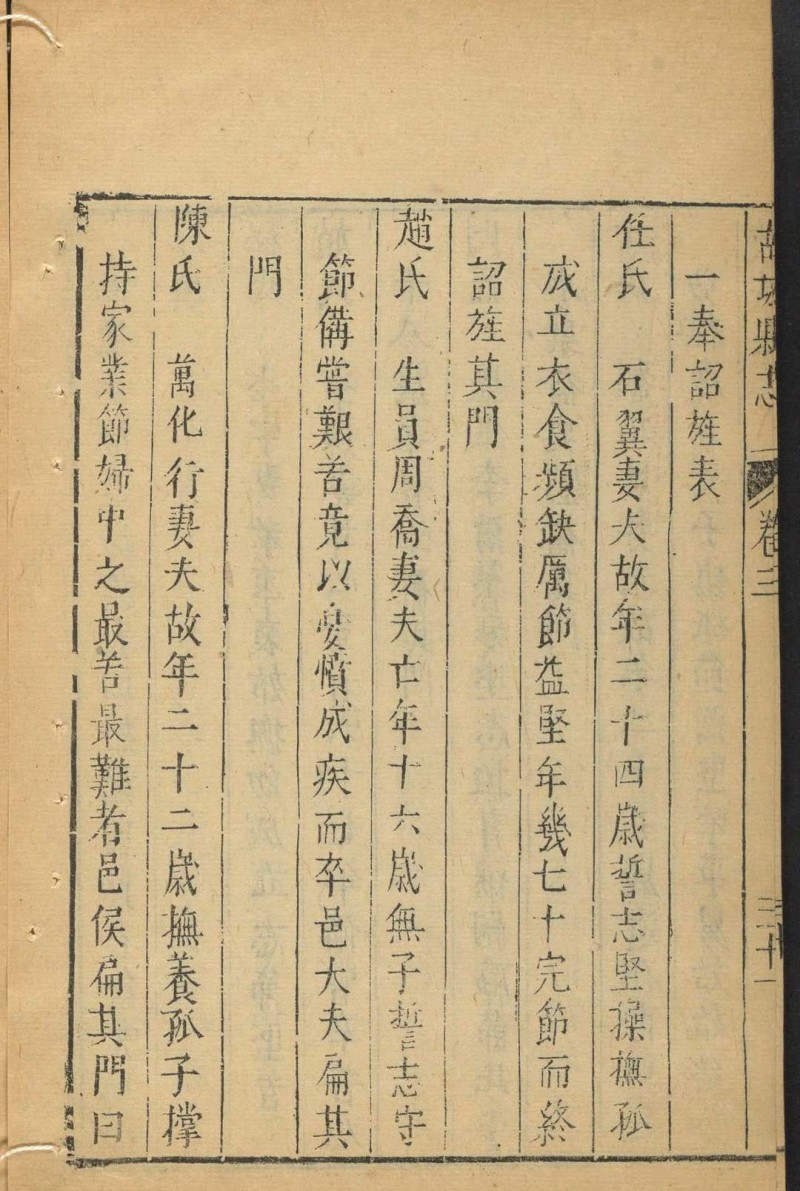 故城縣志 卷三 三十一
一奉詔旌表
任氏 石翼妻夫故年二十四歲誓志堅操撫孤
成立衣食頻缺厲節益堅年幾七十完節而終
詔旌其門
趙氏 生員周喬妻夫亡年十六歲無子誓志守
節備嘗艱苦竟以憂憤成疾而卒邑大夫扁其
門
陳氏 萬化行妻夫故年二十二歲撫養孤子撑
持家業節婦中之最苦最難者邑侯扁其門曰